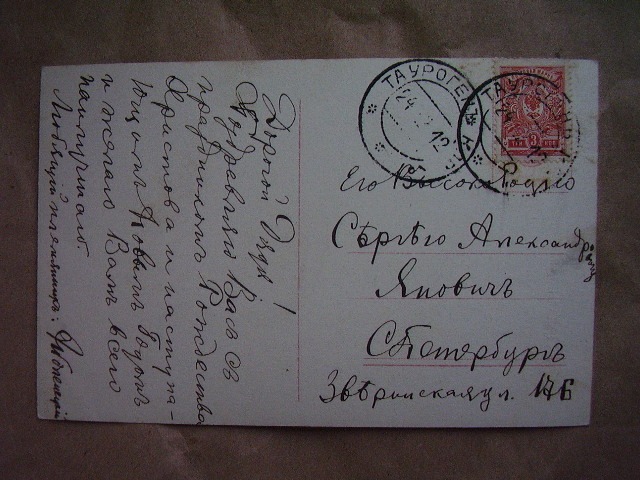 Дорогой Дядя!
Поздравляю Васъ съ
праздникомъ Рождества
Христова и наступа-
ющимъ Новымъ Годомъ
и желаю Вамъ всего
наилучшаго.
Любящій племянникъ:
ТАУРОГЕНЪ
24 12
Его Высокородію
Сергѣю Александро
Яновичъ
С.Петербургъ
Звѣринская ул. 17Б